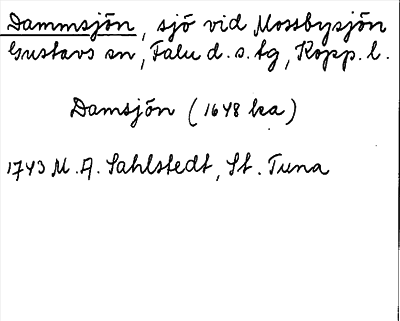 Dammsjön, sjö vid Mossbysjön
Gustavs sn, Falu d.s. tg, Kopp. l.
Damsjön (1648 ka)
1743 M. A. Sahlstedt, St. Tuna